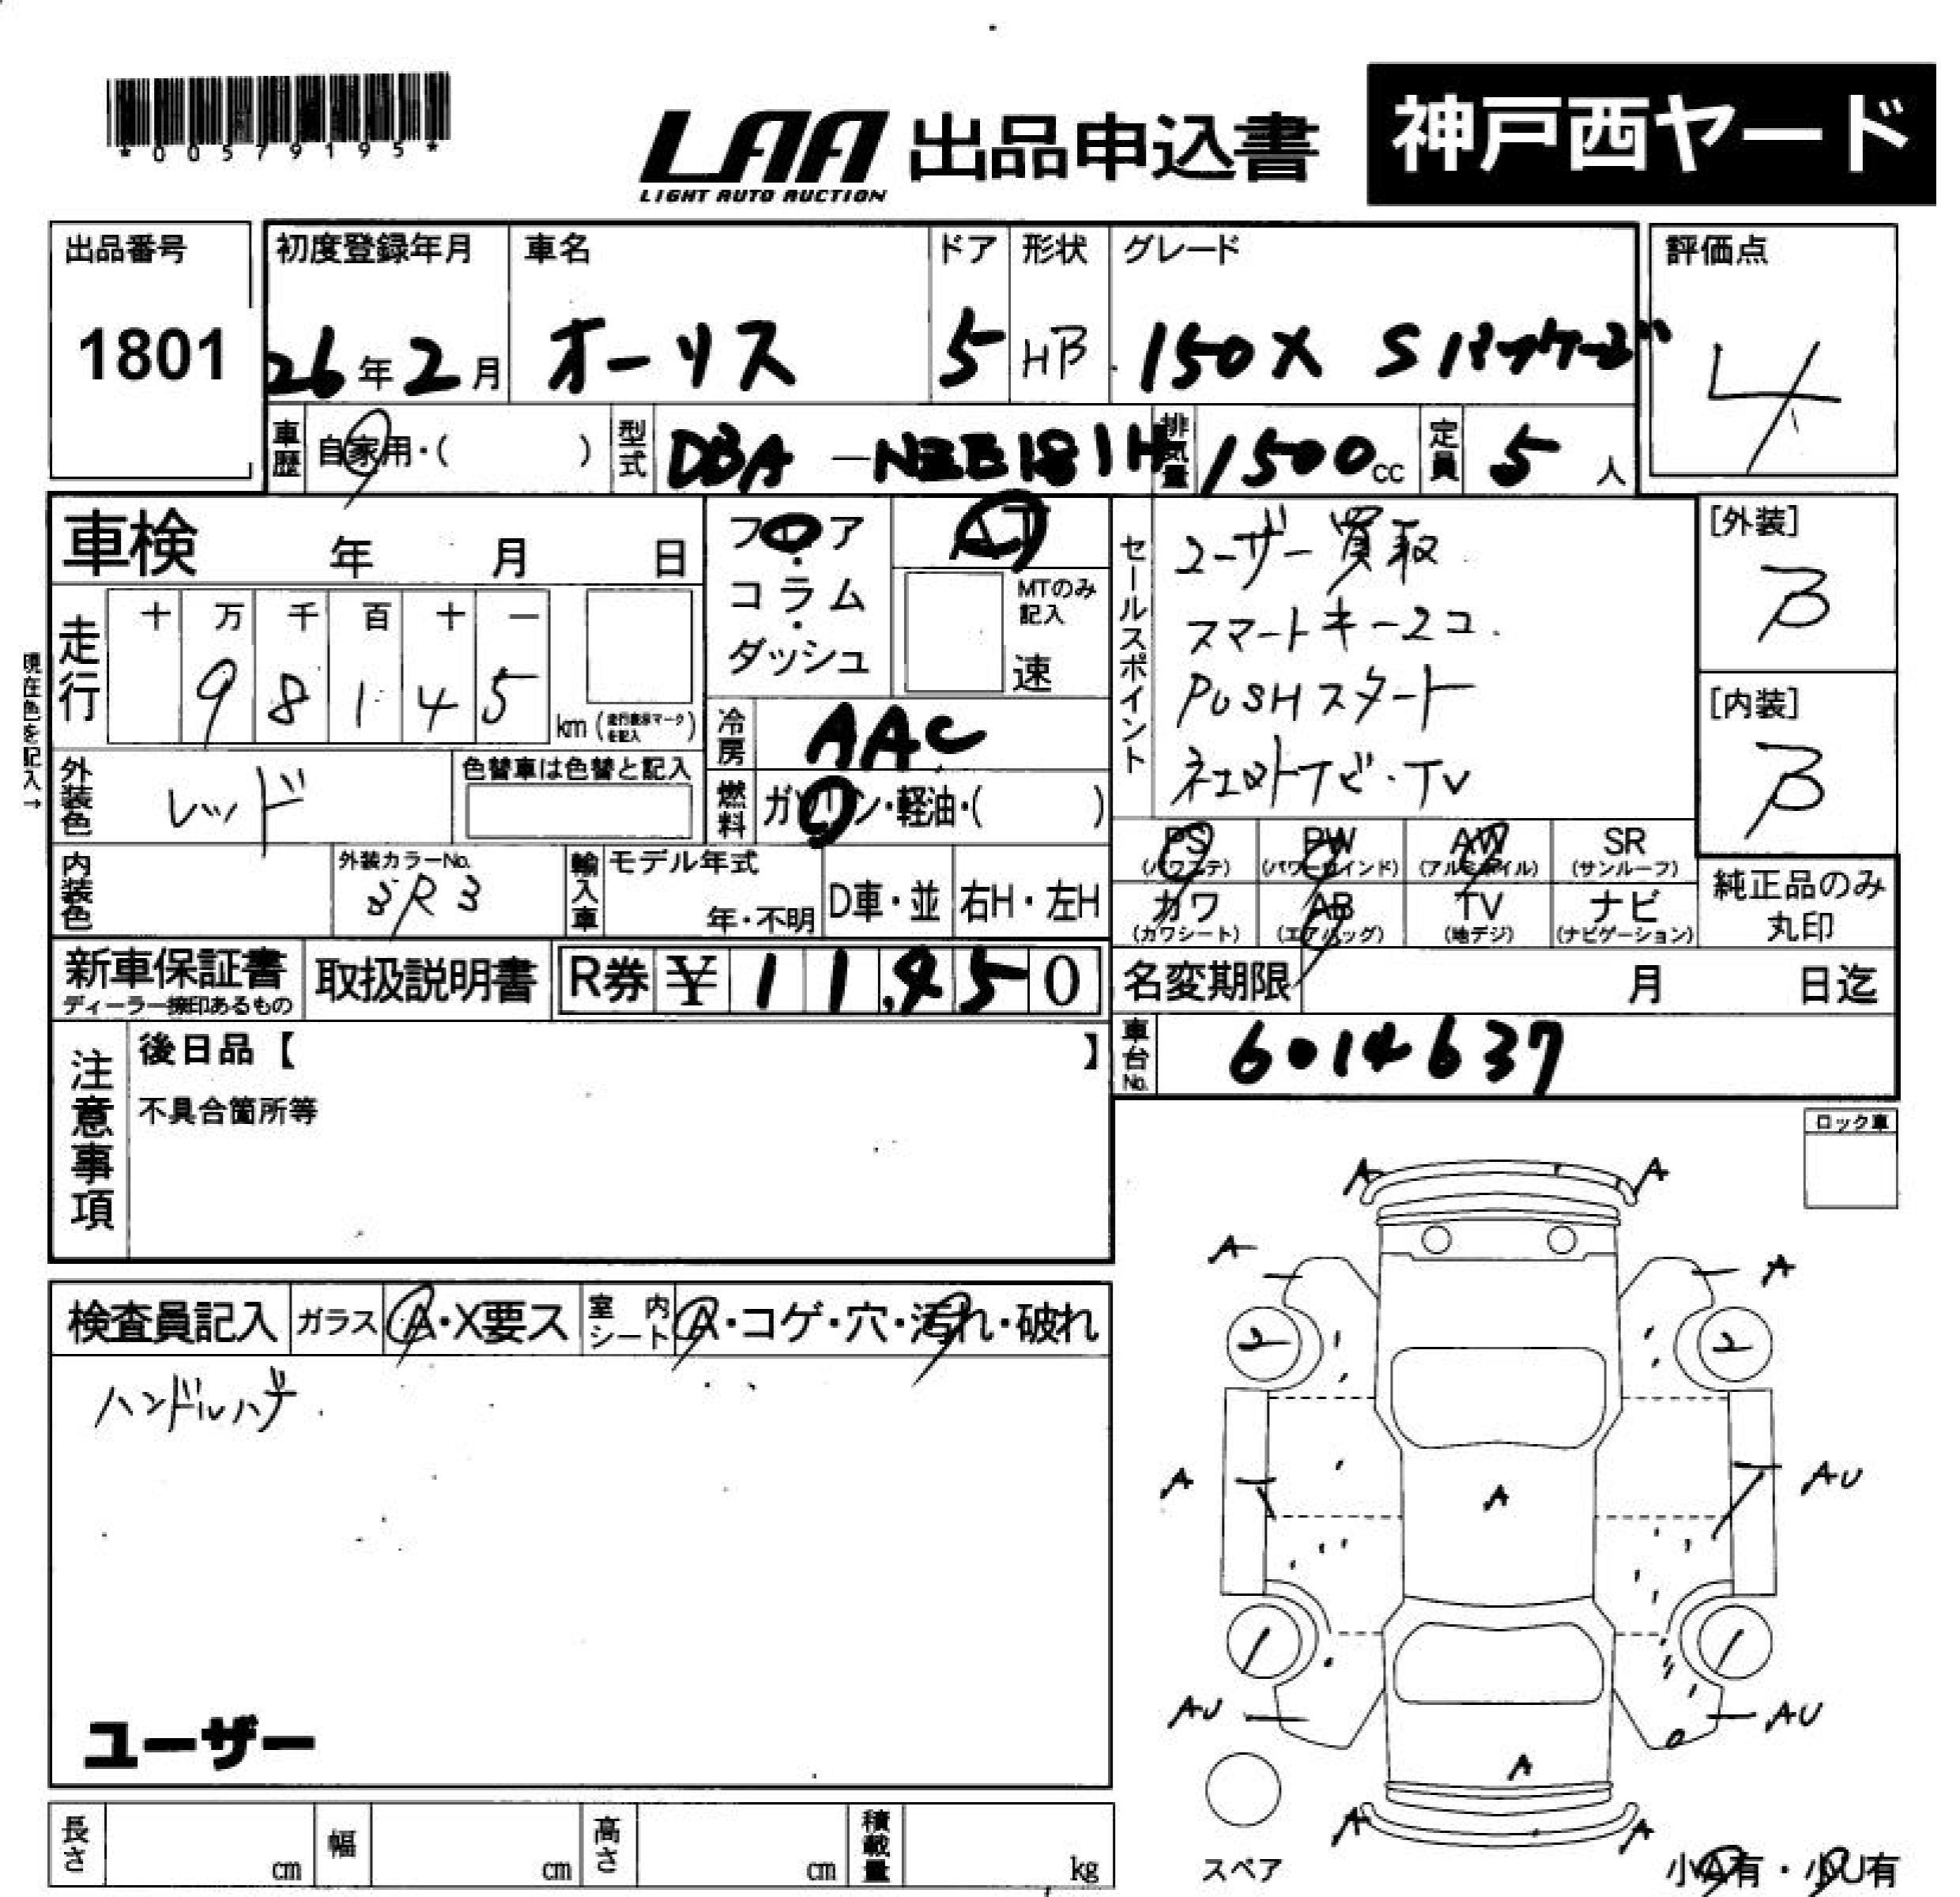 *00579195*
LAA 出品申込書 神戸西ヤード
LIGHT AUTO AUCTION
出品番号 初度登録年月 車名 ドア 形状 グレード 評価点
1801 26年2月 オーリス 5 HB 150X Sパッケージ 4
車歴 自家用・( ) 型式 DBA-NZE181H 排気量 1500cc 定員 5人
車検 年 月 日 フロア AT
コラム
ダッシュ
MTのみ記入
速
セールスポイント
ユーザー買取
スマートキー2コ.
PUSHスタート
ネットナビ・TV
[外装]
B
[内装]
B
現在色を記入→
走行 十 万 千 百 十 一
9 8 1 4 5 km (走行表示マークを記入)
冷房 AAC
外装色 レッド 色替車は色替と記入
燃料 ガソリン・軽油・( )
内装色 外装カラーNo. 3R3 輸入車 モデル年式 年・不明 D車・並 右H・左H
PS (パワステ) PW (パワーウインド) AW (アルミホイル) SR (サンルーフ)
カワ (カワシート) AB (エアバッグ) TV (地デジ) ナビ (ナビゲーション)
純正品のみ
丸印
新車保証書 取扱説明書 R券 ¥ 1 1,4 5 0
ディーラー捺印あるもの
名変期限 月 日迄
車台No. 6014637
注意事項
後日品【 】
不具合箇所等
ロック車
検査員記入 ガラス A・X要ス 室内シート A・コゲ・穴・汚れ・破れ
ハンドルハゲ
ユーザー
A A
A A
2 2
A A AU
AU AU
A
A A
スペア
小A有・小U有
長さ cm 幅 cm 高さ cm 積載量 kg